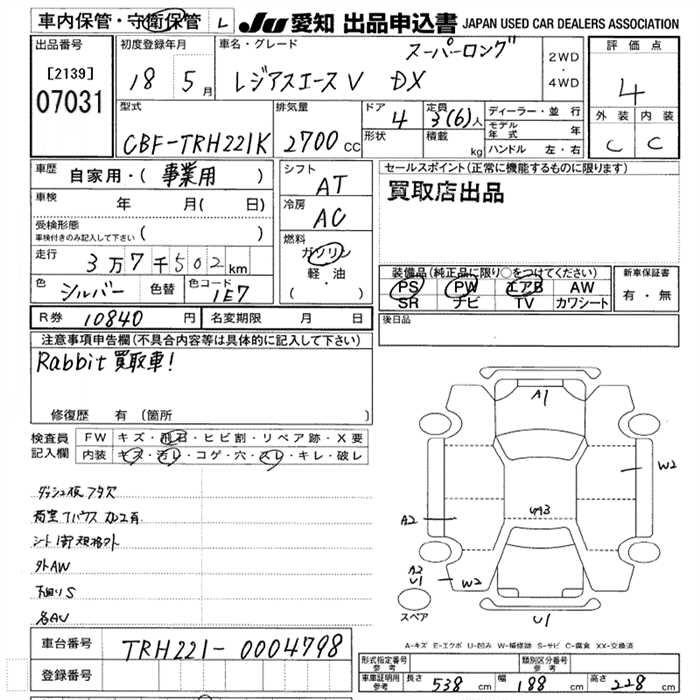 車内保管・守衛保管 L
JU 愛知 出品申込書 JAPAN USED CAR DEALERS ASSOCIATION
出品番号
[2139]
07031
初度登録年月
18 5月
車名・グレード
スーパーロング
レジアスエースV DX
2WD
・
4WD
評価点
4
外装 内装
C C
型式
CBF-TRH221K
排気量
2700 CC
ドア
4
形状
定員
3(6)人
積載 kg
ディーラー・並行
モデル年式 年
ハンドル 左・右
車歴
自家用・(事業用)
車検 年 月( 日)
受検形態
車検付きのみ記入して下さい ( )
走行
3万7千502km
色 シルバー 色替 色コード 1E7
シフト
AT
冷房
AC
燃料
ガソリン
軽・油
( )
セールスポイント(正常に機能するものに限ります)
買取店出品
装備品(純正品に限り○をつけてください)
PS PW エアB AW
SR ナビ TV カワシート
新車保証書
有・無
R券 10840 円 名変期限 月 日
後日品
注意事項申告欄(不具合内容等は具体的に記入して下さい)
Rabbit 買取車!
修復歴 有(箇所 )
検査員
記入欄
FW キズ・飛石・ヒビ割・リペア跡・X要
内装 キズ・汚レ・コゲ・穴・スレ・キレ・破レ
ダッシュ板フタ欠
荷室 加工有
シート1街規格外
外AW
下回りS
A1
W2
A2
A3
A2
U1
W2
U1
スペア
A-キズ E-エクボ U-凹み W-補修跡 S-サビ C-腐食 XX-交換済
車台番号 TRH221-0004798
登録番号
形式指定番号 参考
類別区分番号 参考
車庫証明用 参考 長さ 538 cm 幅 188 cm 高さ 228 cm